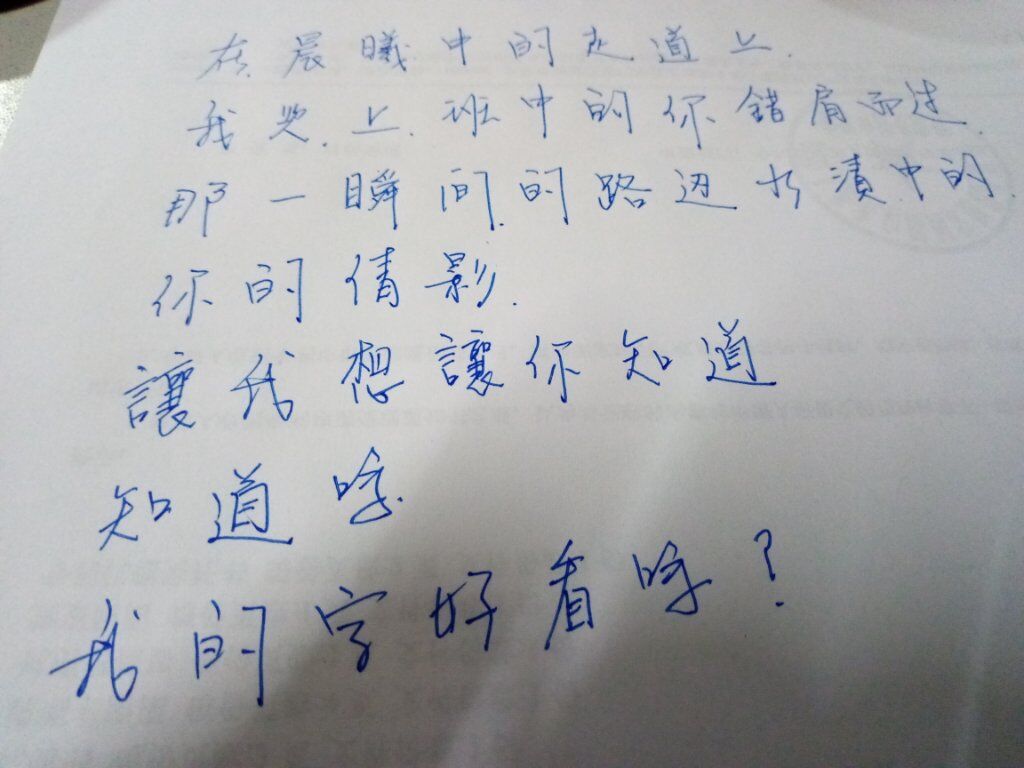 在晨曦中的走道上.
我哭.上.班中的你錯肩而过.
那一瞬间的路边水漬中的.
你的倩影.
讓我想讓你知道
知道嗎
我的字好看嗎?